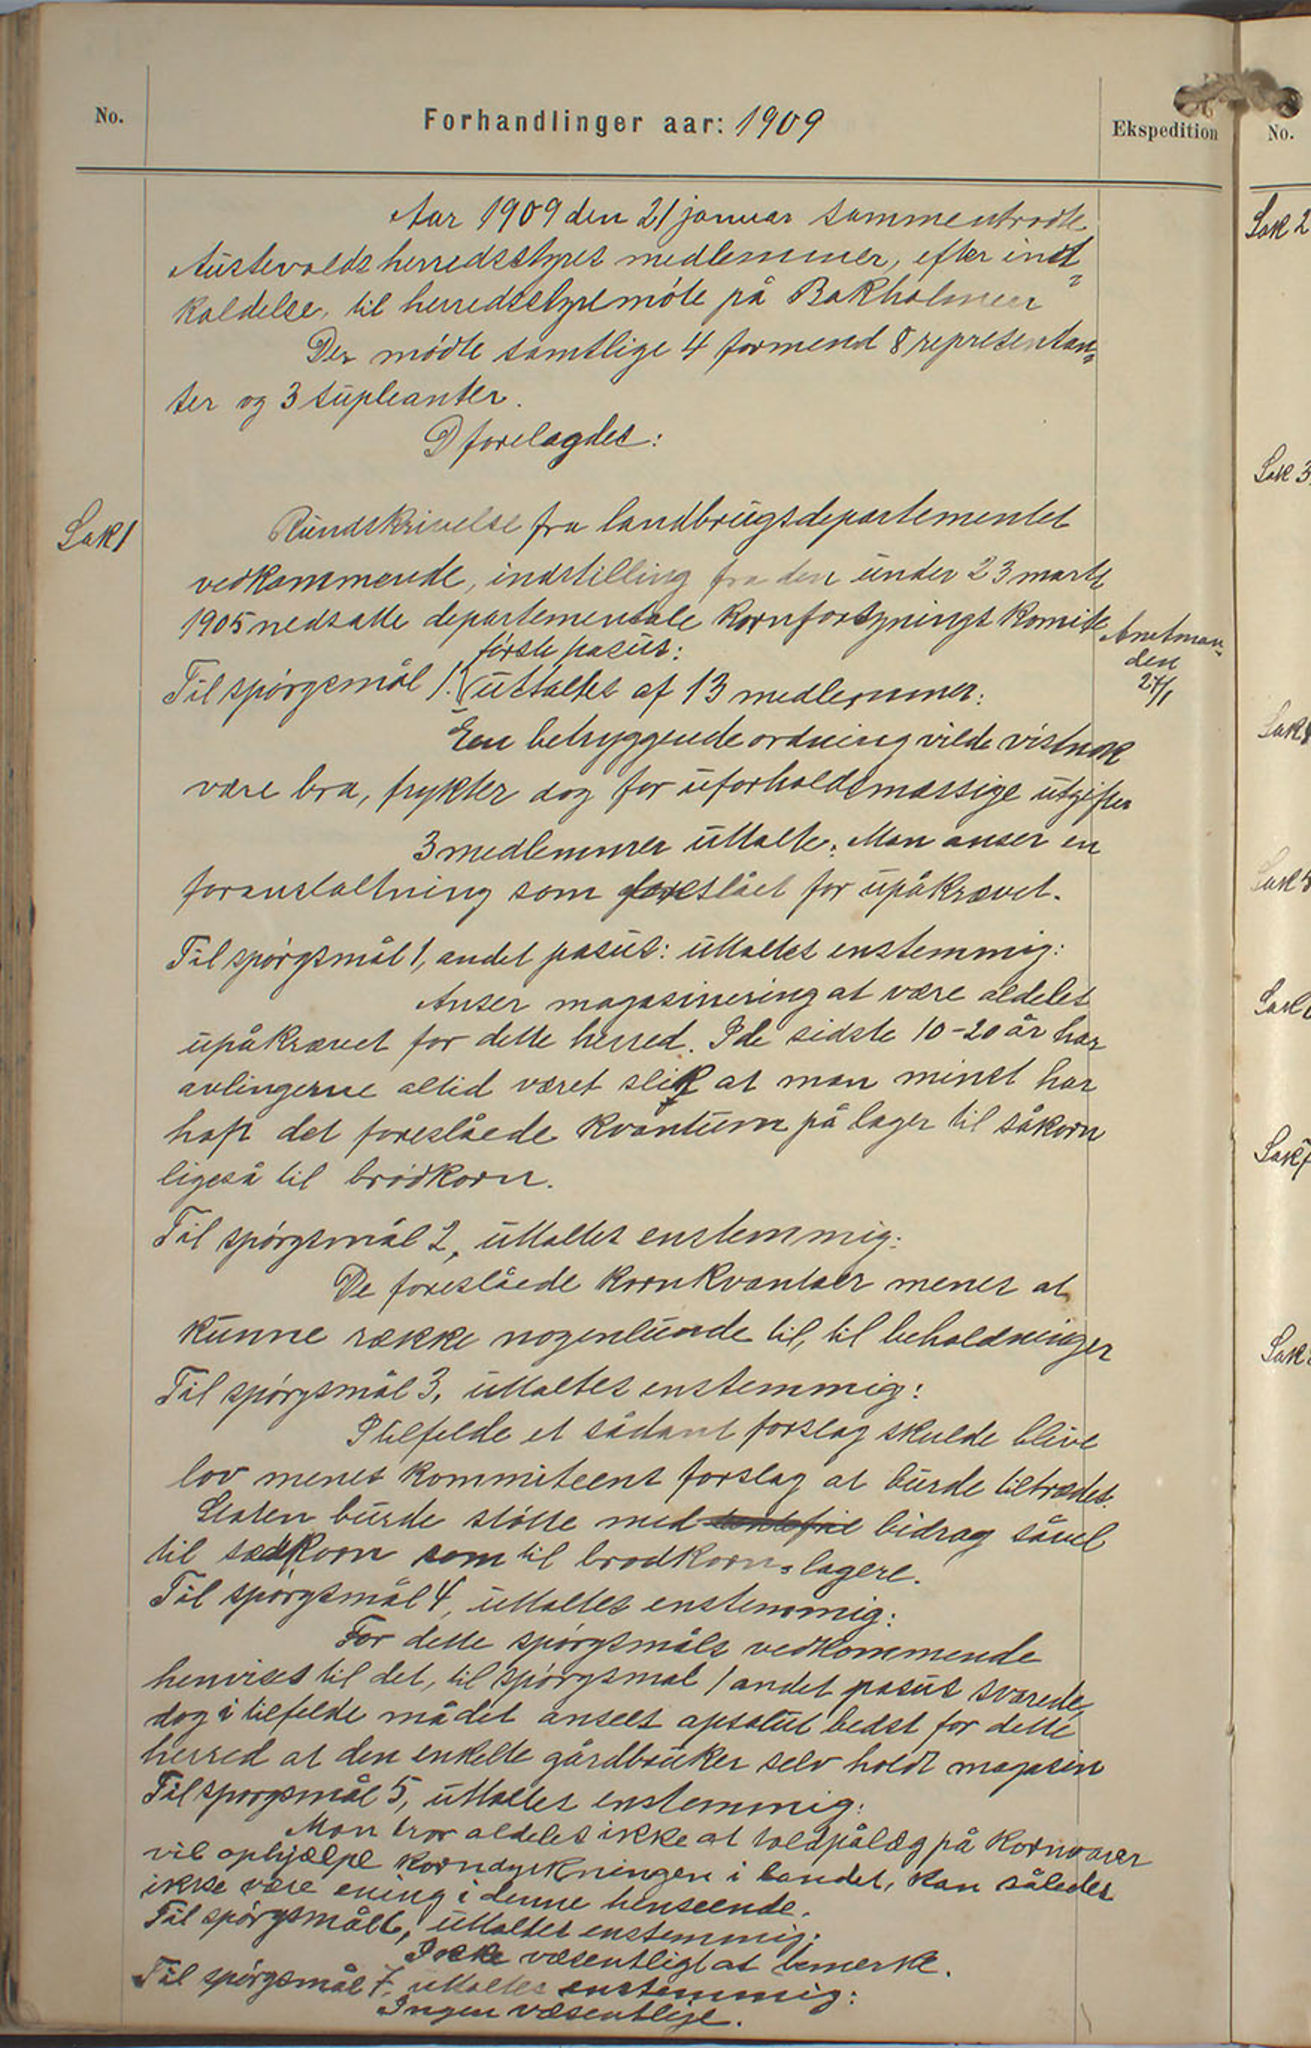 No.
Forhandlinger aar: 1909
Ekspedition
No.
Aar 1909 den 21 januar sammentrodte
Austevolds herredsstyres medlemmer, efter ind-
kaldelse, til herredsstyremöte på Bakholmen
Der mödte samtlige 4 formend 8 representan-
ter og 3 supleanter.
D forelagdes:
Sak 1
Rundskrivelse fra landbrugsdepartementet
vedkommende, indstilling fra den under 23 marts
1905 nedsatte departementale Kornforsynings Komite
Amtman-
den
27/1
förste pasus:
Til spörgsmål 1. uttaltes af 13 medlemmer:
En betryggende ordning vilde vistnok
være bra, frykter dog for uforholdsmæssige utgifter
3 medlemmer uttalte: Man anser en
foranstaltning som foreslået for upåkrævet.
Til spörgsmål 1, andet pasus: uttaltes enstemmig:
Anser magasinering at være aldeles
upåkrævet for dette herred. I de sidste 10-20 år har
avlingerne altid været slik at man minst har
haft det foreslåede kvantum på lager til såkorn
ligeså til brödkorn.
Til spörgsmål 2, uttaltes enstemmig:
De foreslåede kornkvantaer menes at
kunne række nogenlunde til, til beholdninger
Til spörgsmål 3, uttaltes enstemmig:
I tilfelde et sådant forslag skulde blive
lov menes kommiteens forslag at burde tiltrædes.
Staten burde stötte med bidrag såvel
til sædkorn som til brodkorns lagere.
Til spörgsmål 4, uttaltes enstemmig:
For dette spörgsmåls vedkommende
henvises til det, til spörgsmål 1 andet pasus svarede,
dog i tilfelde må det ansees apsolut bedst for dette
herred at den enkelte gårdbruker selv holdt magasin
Til spörgsmål 5, uttaltes enstemmig:
Man tror aldeles ikke at toldpålæg på Kornvarer
vil ophjælpe korndyrkningen i landet, kan således
ikke være ening i denne henseende.
Til spörgsmål 6, uttaltes enstemmig:
Ikke væsentligt at bemerke.
Til spörgsmål 7, uttaltes enstemmig:
Ingen væsentlige.
Sak 2
Sak 3
Sak 4
Sak 5
Sak
Sak 7
Sak